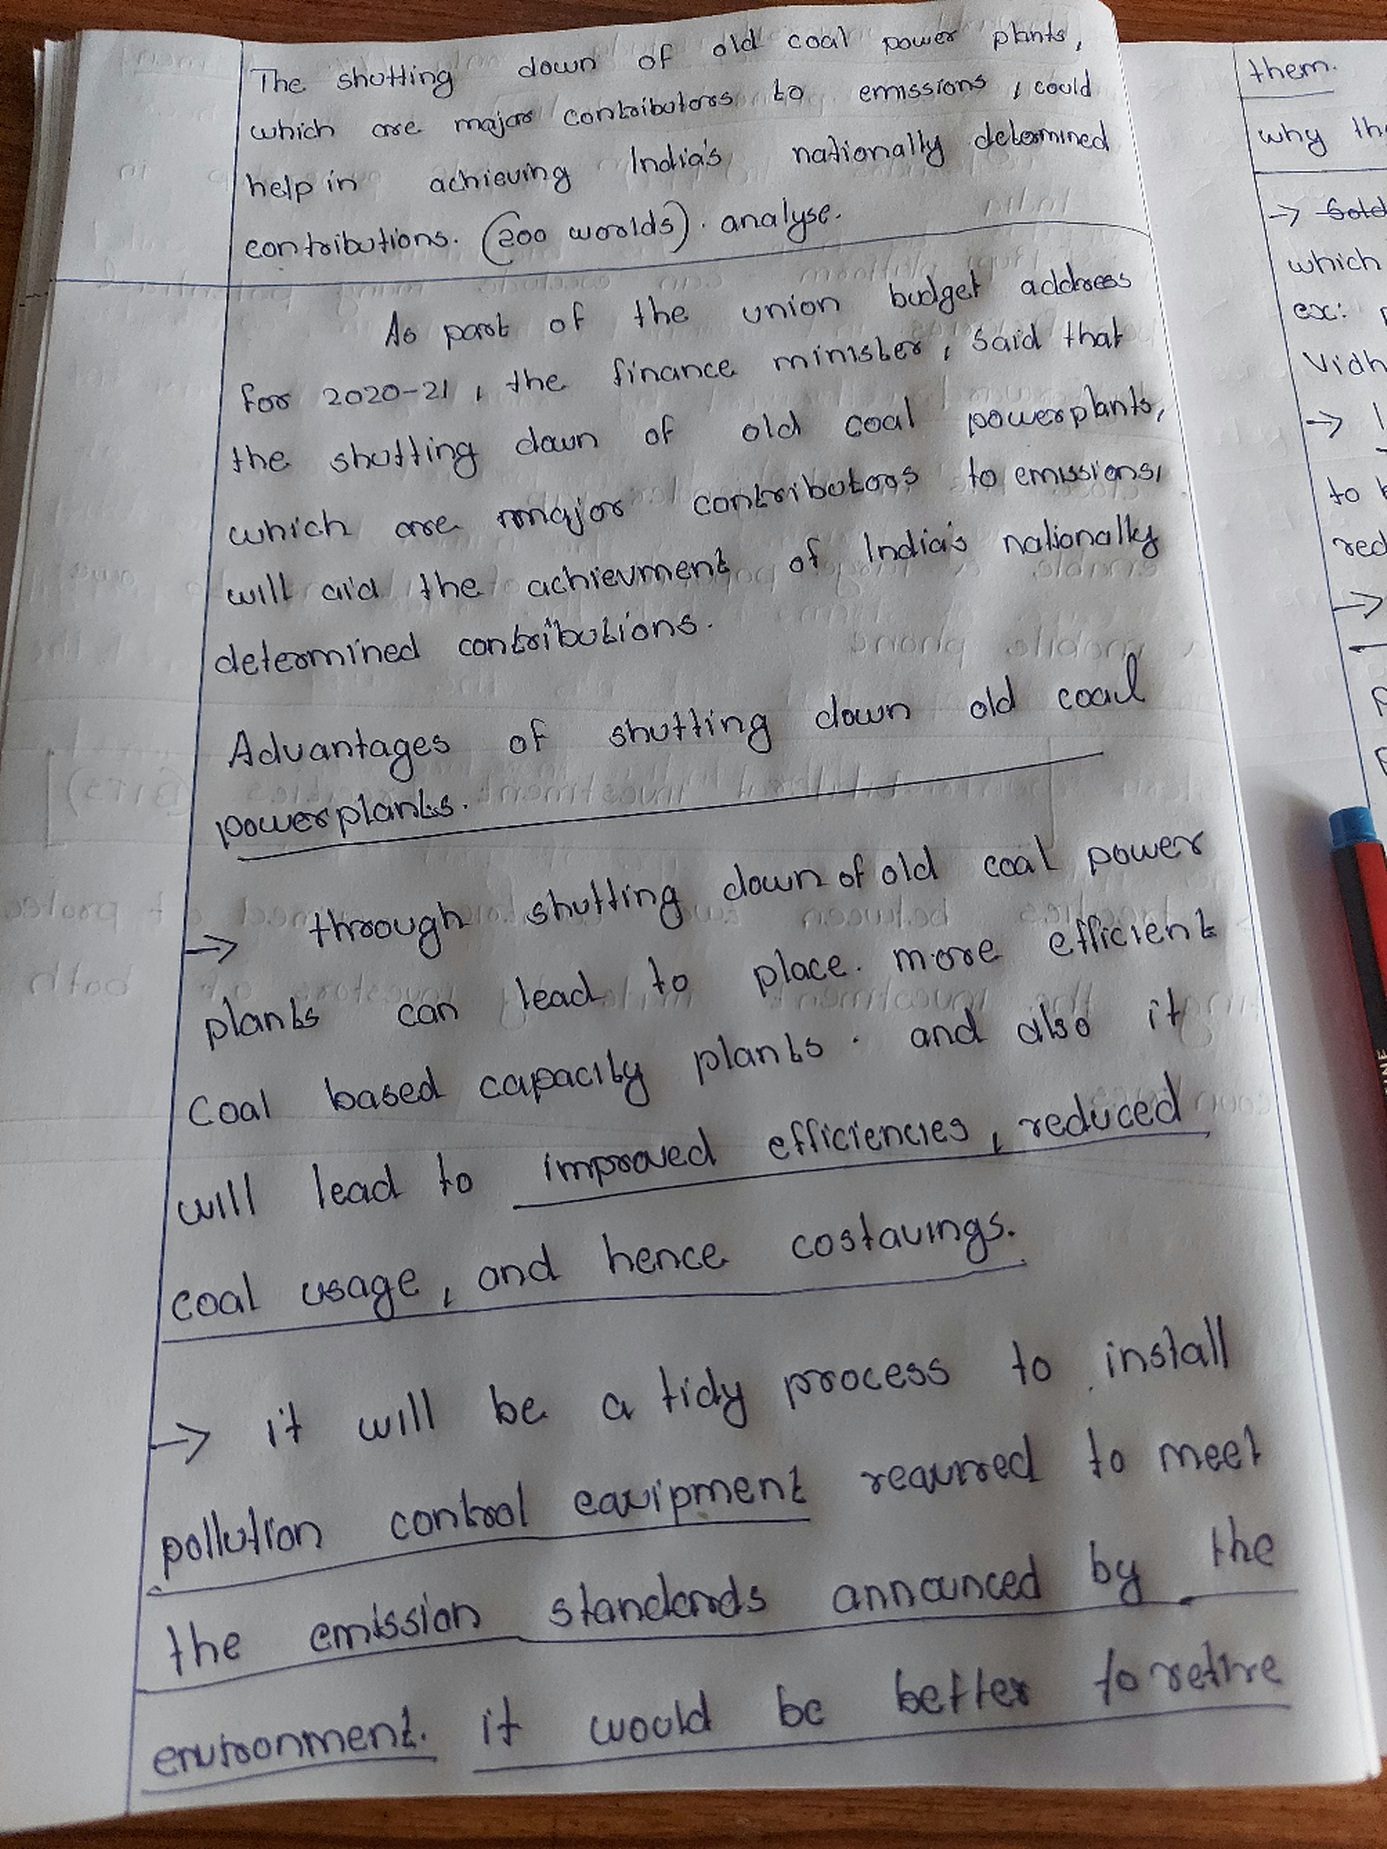 The shutting down of old coal power plants,
which are major contributors to emissions, could
help in achieving India's nationally determined
contributions. (200 woolds). analyse.
As part of the union budget address
for 2020-21, the finance minister, said that
the shutting down of old coal powerplants,
which are major contributors to emissions,
will aid the achievment of India's nationally
determined contributions.
Advantages of shutting down old coal
powerplants.
→ through shutting down of old coal power
plants can lead to place. more efficient
Coal based capacity plants. and also it
will lead to improved efficiencies, reduced
coal usage, and hence costavings.
→ it will be a tidy process to install
pollution control equipment required to meet
the emission standards announced by the
environment. it would be better to retire
them.
why th
→ Gold
which
ex:
Vidh
→
to
red
→